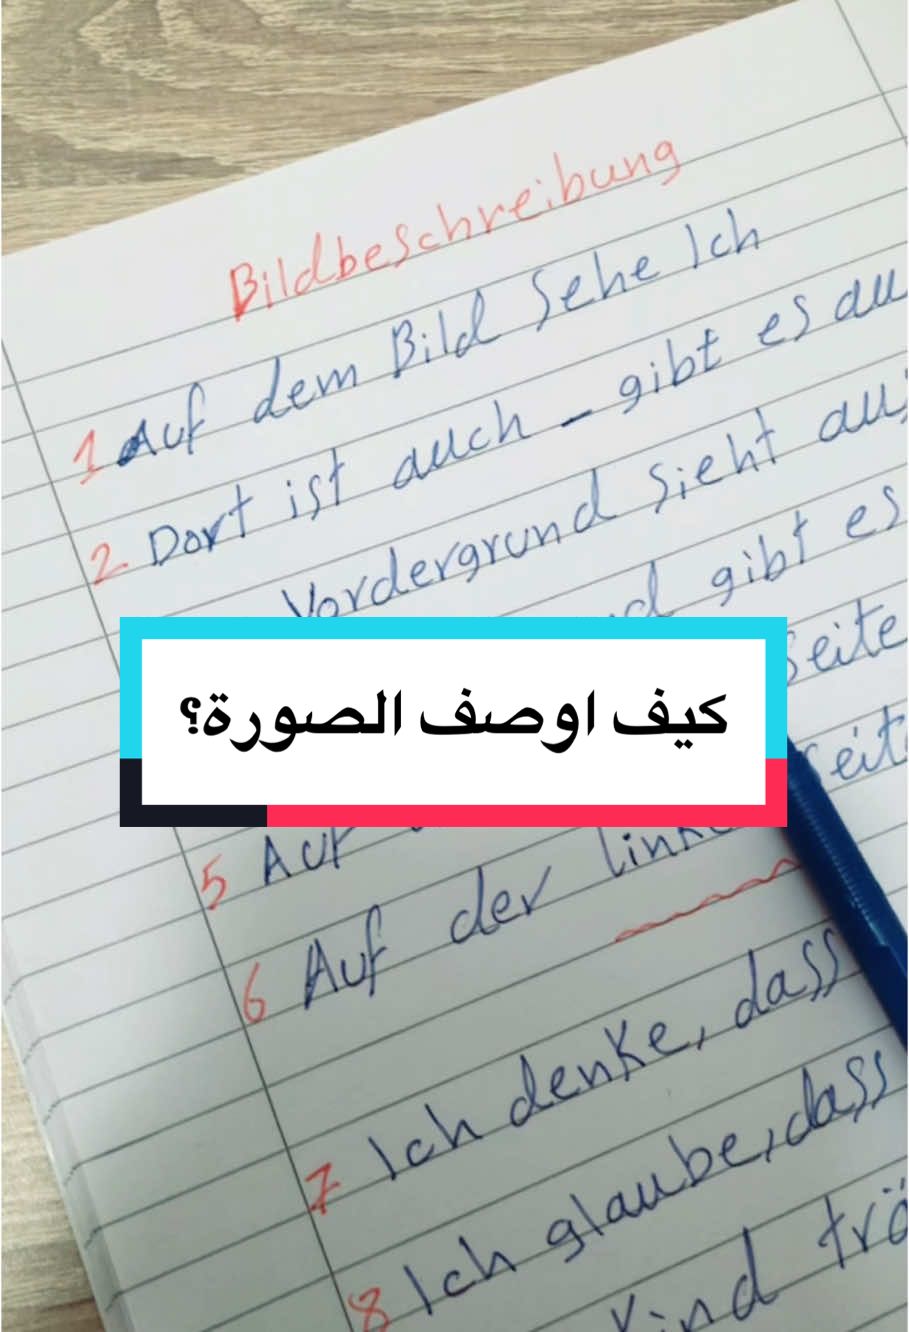 Bildbeschreibung
1 Auf dem Bild sehe Ich
2 Dort ist auch - gibt es au
Vordergrund sieht aus
gibt es
Seite
كيف اوصف الصورة؟
seit
5 Auf
6 Auf der linke
7 Ich denke, dass
8 Ich glaube, dass
Kind trä